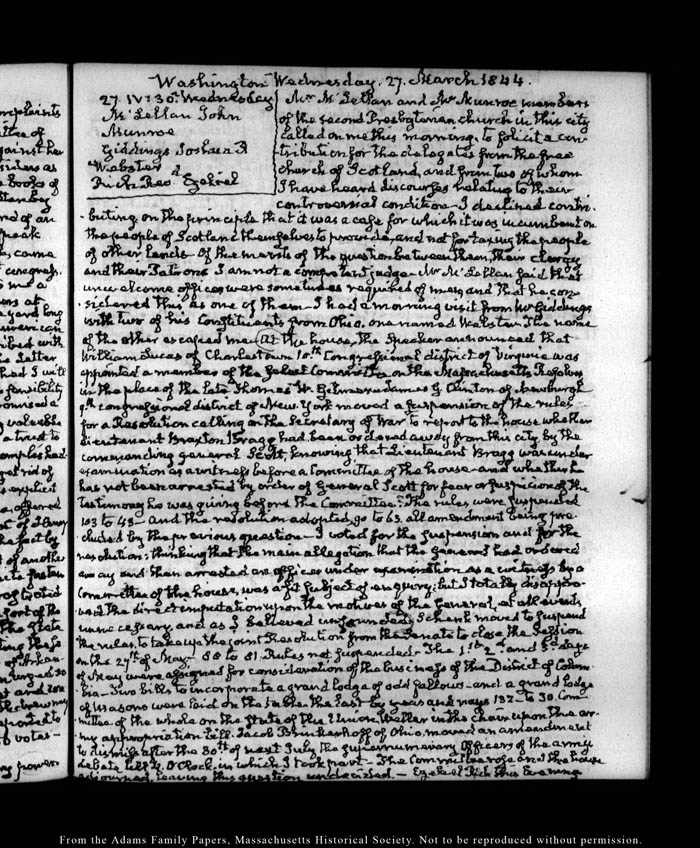 Washington Wednesday. 27. March 1844.
27. IV: 30. Wednesday
McLellan John
Munroe
Giddings Joshua R
Webster
Rich Rev Ezekiel
Mr McLellan and Mr Munroe members
of the second Presbyterian church in this city
called on me this morning, to solicit a con-
tribution for the delegates from the free
church of Scotland, and from two of whom
I have heard discourses relating to their
controversial condition. I declined contri-
buting, on the principle that it was a case for which it was incumbent on
the people of Scotland themselves to provide, and not for taxing the people
of other lands. Of the merits of the question between them, their clergy
and their Patrons I am not a competent judge. Mr McLellan said that
unwelcome offices were sometimes required of men, and that he con-
sidered this as one of them. I had a morning visit from Mr Giddings
with two of his Constituents from Ohio. one named Webster. The name
of the other escaped me. At the house, the Speaker announced that
William Lucas of Charlestown 10th Congressional district of Virginia was
appointed a member of the select Committee on the Massachusetts Resolves
in the place of the late Thomas W. Gilmer. James G Clinton of Newburgh
9th congressional district of New York moved a suspension of the rules
for a Resolution calling on the Secretary of War to report to the house whether
Lieutenant Braxton Bragg had been ordered away from this city by the
commanding general Scott, knowing that Lieutenant Bragg was under
examination as a witness before a Committee of the house and whether he
has not been arrested by order of General Scott for fear or suspicion of the
testimony he was giving before the Committee. The rules were suspended
103 to 43 and the resolution adopted, 90 to 63. all amendment being pre-
cluded by the previous question. I voted for the suspension and for the
resolution; thinking that the main allegation that the General had ordered
away and then arrested an officer under examination as a witness by a
Committee of the house, was a fit subject of enquiry; but I totally disappro-
ved the direct imputation upon the motives of the General, at all events
unnecessary, and as I believed unfounded. Schenck moved to suspend
the rules, to take up the joint Resolution from the Senate to close the Session
on the 27th of May. 88 to 81. Rules not suspended. The 1st 2d and 3d days
of May were assigned for consideration of the business of the District of Colum-
bia. Two bills to incorporate a grand lodge of odd fellows and a grand lodge
of Masons were laid on the table. the last by yeas and nays 132 to 30. Com-
mittee of the whole on the State of the Union, Weller in the chair upon the ar-
my appropriation bill. Jacob Brinkerhoff of Ohio moved an amendment
to dismiss after the 30th of next July the supernumerary Officers of the army
debate till 4 O'Clock, in which I took part. The Committee rose and the house
adjourned leaving this question undecided. Ezekiel Rich this Evening
From the Adams Family Papers, Massachusetts Historical Society. Not to be reproduced without permission.